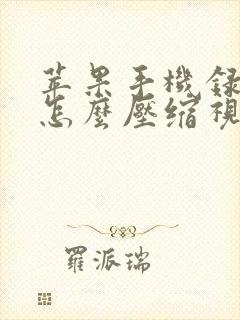 苹果手機錄
怎麼壓缩視
羅派瑞